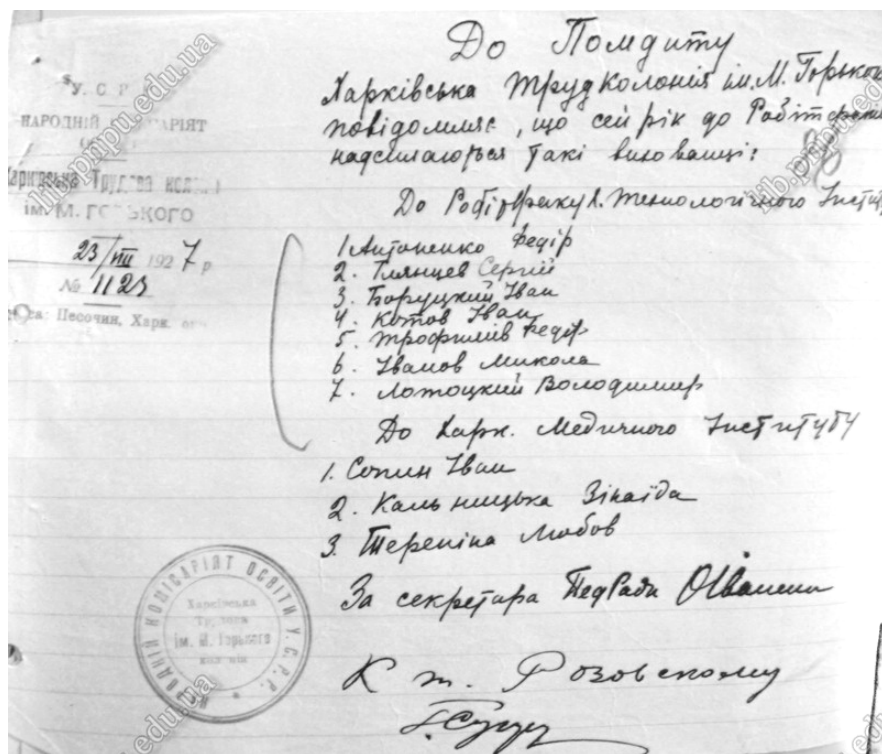 У. С. Р. Р.
НАРОДНІЙ КОМІСАРІЯТ
Харківська Трудова колонія
ім. М. ГОРЬКОГО
23/VIII 1927 р
№ 1123
Песочин, Харк.
До Помдиту
Харківська Трудколонія ім. М. Горького
повідомляє, що сей рік до Робітфаків
надсилаються такі вихованці:
До Робітфаку Х. Технологічного Інститу
1 Антоненко Федір
2. Глянцев Сергій
3. Боруцкий Іван
4. Котов Іван
5. Трофилів Федір
6. Іванов Микола
7. Лотоцкий Володимир
До Харк. Медичного Інституту
1. Сопин Іван
2. Кальницька Зінаїда
3. Терепіна Любов
За секретара ПедРади
К т. Розовскому
НАРОДНІЙ КОМІСАРІЯТ ОСВІТИ У.С.Р.Р.
Харківська
Трудова
ім. М. Горького
колонія
lib.pnpu.edu.ua
lib.pnpu.edu.ua
lib.pnpu.edu.ua